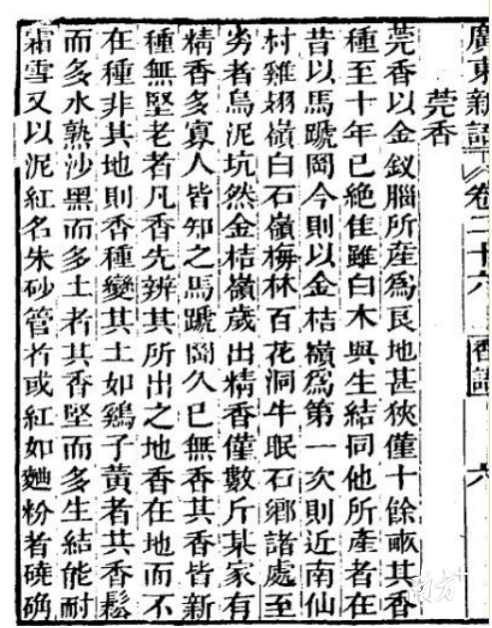 廣東新語 卷二十六 香語 六
莞香
莞香以金釵腦所產爲良地甚狹僅十餘畝其香
種至十年已絕佳雖白木與生結同他所產者在
昔以馬蹏岡今則以金桔嶺爲第一次則近南仙
村雞翅嶺白石嶺梅林百花洞牛眠石鄉諸處至
劣者烏泥坑然金桔嶺歲出精香僅數斤某家有
精香多寡人皆知之馬蹏岡久已無香其香皆新
種無堅老者凡香先辨其所出之地香在地而不
在種非其地則香種變其土如鷄子黃者其香鬆
而多水熟沙黑而多土者其香堅而多生結能耐
霜雪又以泥紅名朱砂管者或紅如麯粉者磽确
南方+